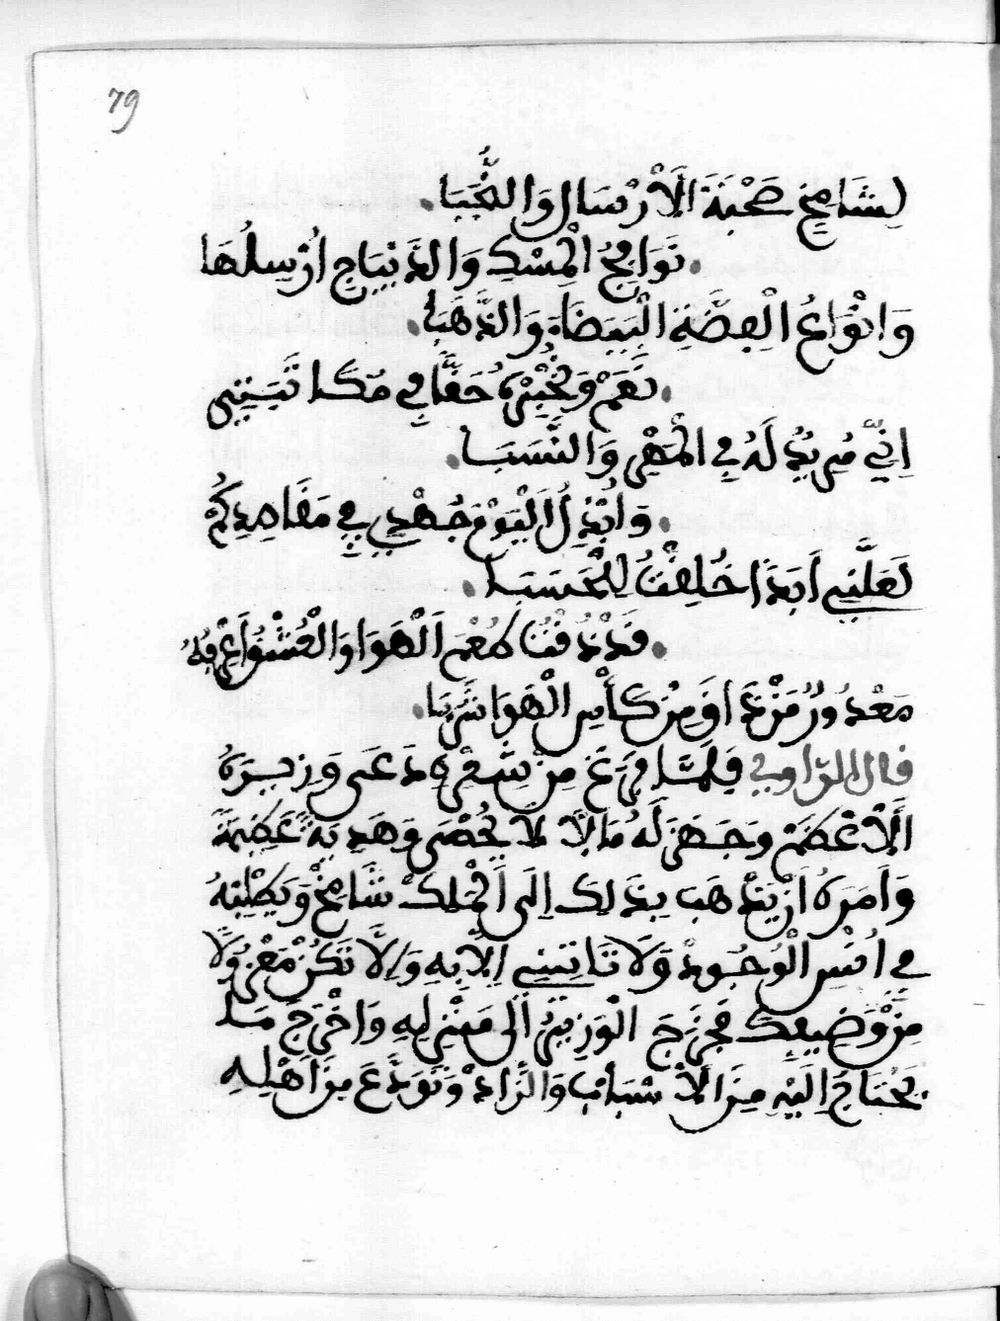 79
لِشَامِخٍ صَحْبَةَ الَارْسَالِ وَالنُّجَبَا.
.نَوَافِجُ الْمِسْكِ وَالدِّيبَاجِ ارْسِلُهَا
وَانْوَاعُ الْفِضَّةِ الْبَيْضَاءِ وَالذَّهَبَا.
.نَعَمْ وَنُخْبِرُهُ حَقًّا فِي
اِنِّي مُرِيدٌ لَهُ فِي الْمَهْرِ وَالنَّسَبَا.
.وَابْذِلُ الْيَوْمَ جُهْدِي فِي مَقَاصِدِكُمْ
لَعَلَّنِي اَبَدًا خُلِقْتُ لِلْحَسَبَا.
.قَدْ ذُقْتُ طَعْمَ الْهَوَا وَالْعِشْقُ اَعْرِفُهُ
مَعْذُورٌ مَنْ ذَاقَ مِنْ كَأْسِ الْهَوَا شَرِبَا.
قال الراوي فَلَمَّا فَرَغَ مِنْ شِعْرِهِ دَعَى وَزِيرَهُ
الَاعْظَمْ وَجَهَّزَ لَهُ مَالًا لَا يُحْصَى وَهَدِيَةً عَظِيمَةً
وَاَمَرَهُ اَنْ يَذْهَبَ بِذَلِكَ اِلَى الْمَلِكْ شَامِخْ وَيَطْلِبْهُ
فِي اُنْسِ الْوُجُودْ وَلَا تَاتِينِي اِلَّا بِهِ وَاِلَّا تَكُنْ مَعْزُولًا
مِنْ وَضِيعِكَ فَخَرَجَ الْوَزِيرُ اِلَى مَنْزِلِهِ وَاخْرَجَ مَا
يَحْتَاجُ اِلَيْهِ مِنَ الَاسْبَابِ وَالزَّادْ وَتَوَدَّعَ مِنْ اَهْلِهِ